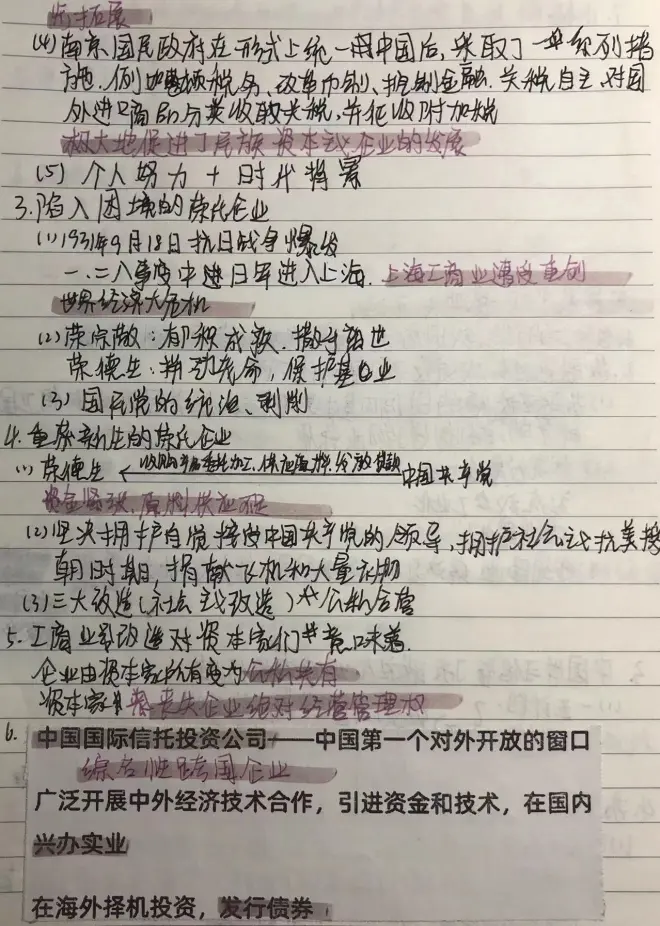 拓展
(4)南京国民政府在形式上统一中国后,采取了一系列措
施.例如整顿税务、改革币制、控制金融.关税自主.对国
外进口商品分类收取关税,并征收附加税
极大地促进了民族资本主义企业的发展
(5)个人努力+时代背景
3.陷入困境的荣氏企业
(1)1931年9月18日抗日战争爆发
一.二八事变中日军进入上海.上海工商业遭受重创
世界经济大危机
(2)荣宗敬:有积成颓.撒手离世
荣德生:劳动先命,保护基业
(3)国民党的统治、剥削
4.重获新生的荣氏企业
(1)荣德生 ← 收购产品委托加工.供应原料.分散贷款 中国共产党
资金紧张.原料供应不足
(2)坚决拥护自觉接受中国共产党的领导,拥护社会主义抗美援
朝时期,捐献飞机和大量衣物
(3)三大改造(社会主义改造)公私合营
5.工商业改造对资本家们意味着.
企业由资本家所有变为公私共有
资本家将丧失企业绝对经营管理权
6.中国国际信托投资公司——中国第一个对外开放的窗口
综合性跨国企业
广泛开展中外经济技术合作,引进资金和技术,在国内
兴办实业
在海外择机投资,发行债券